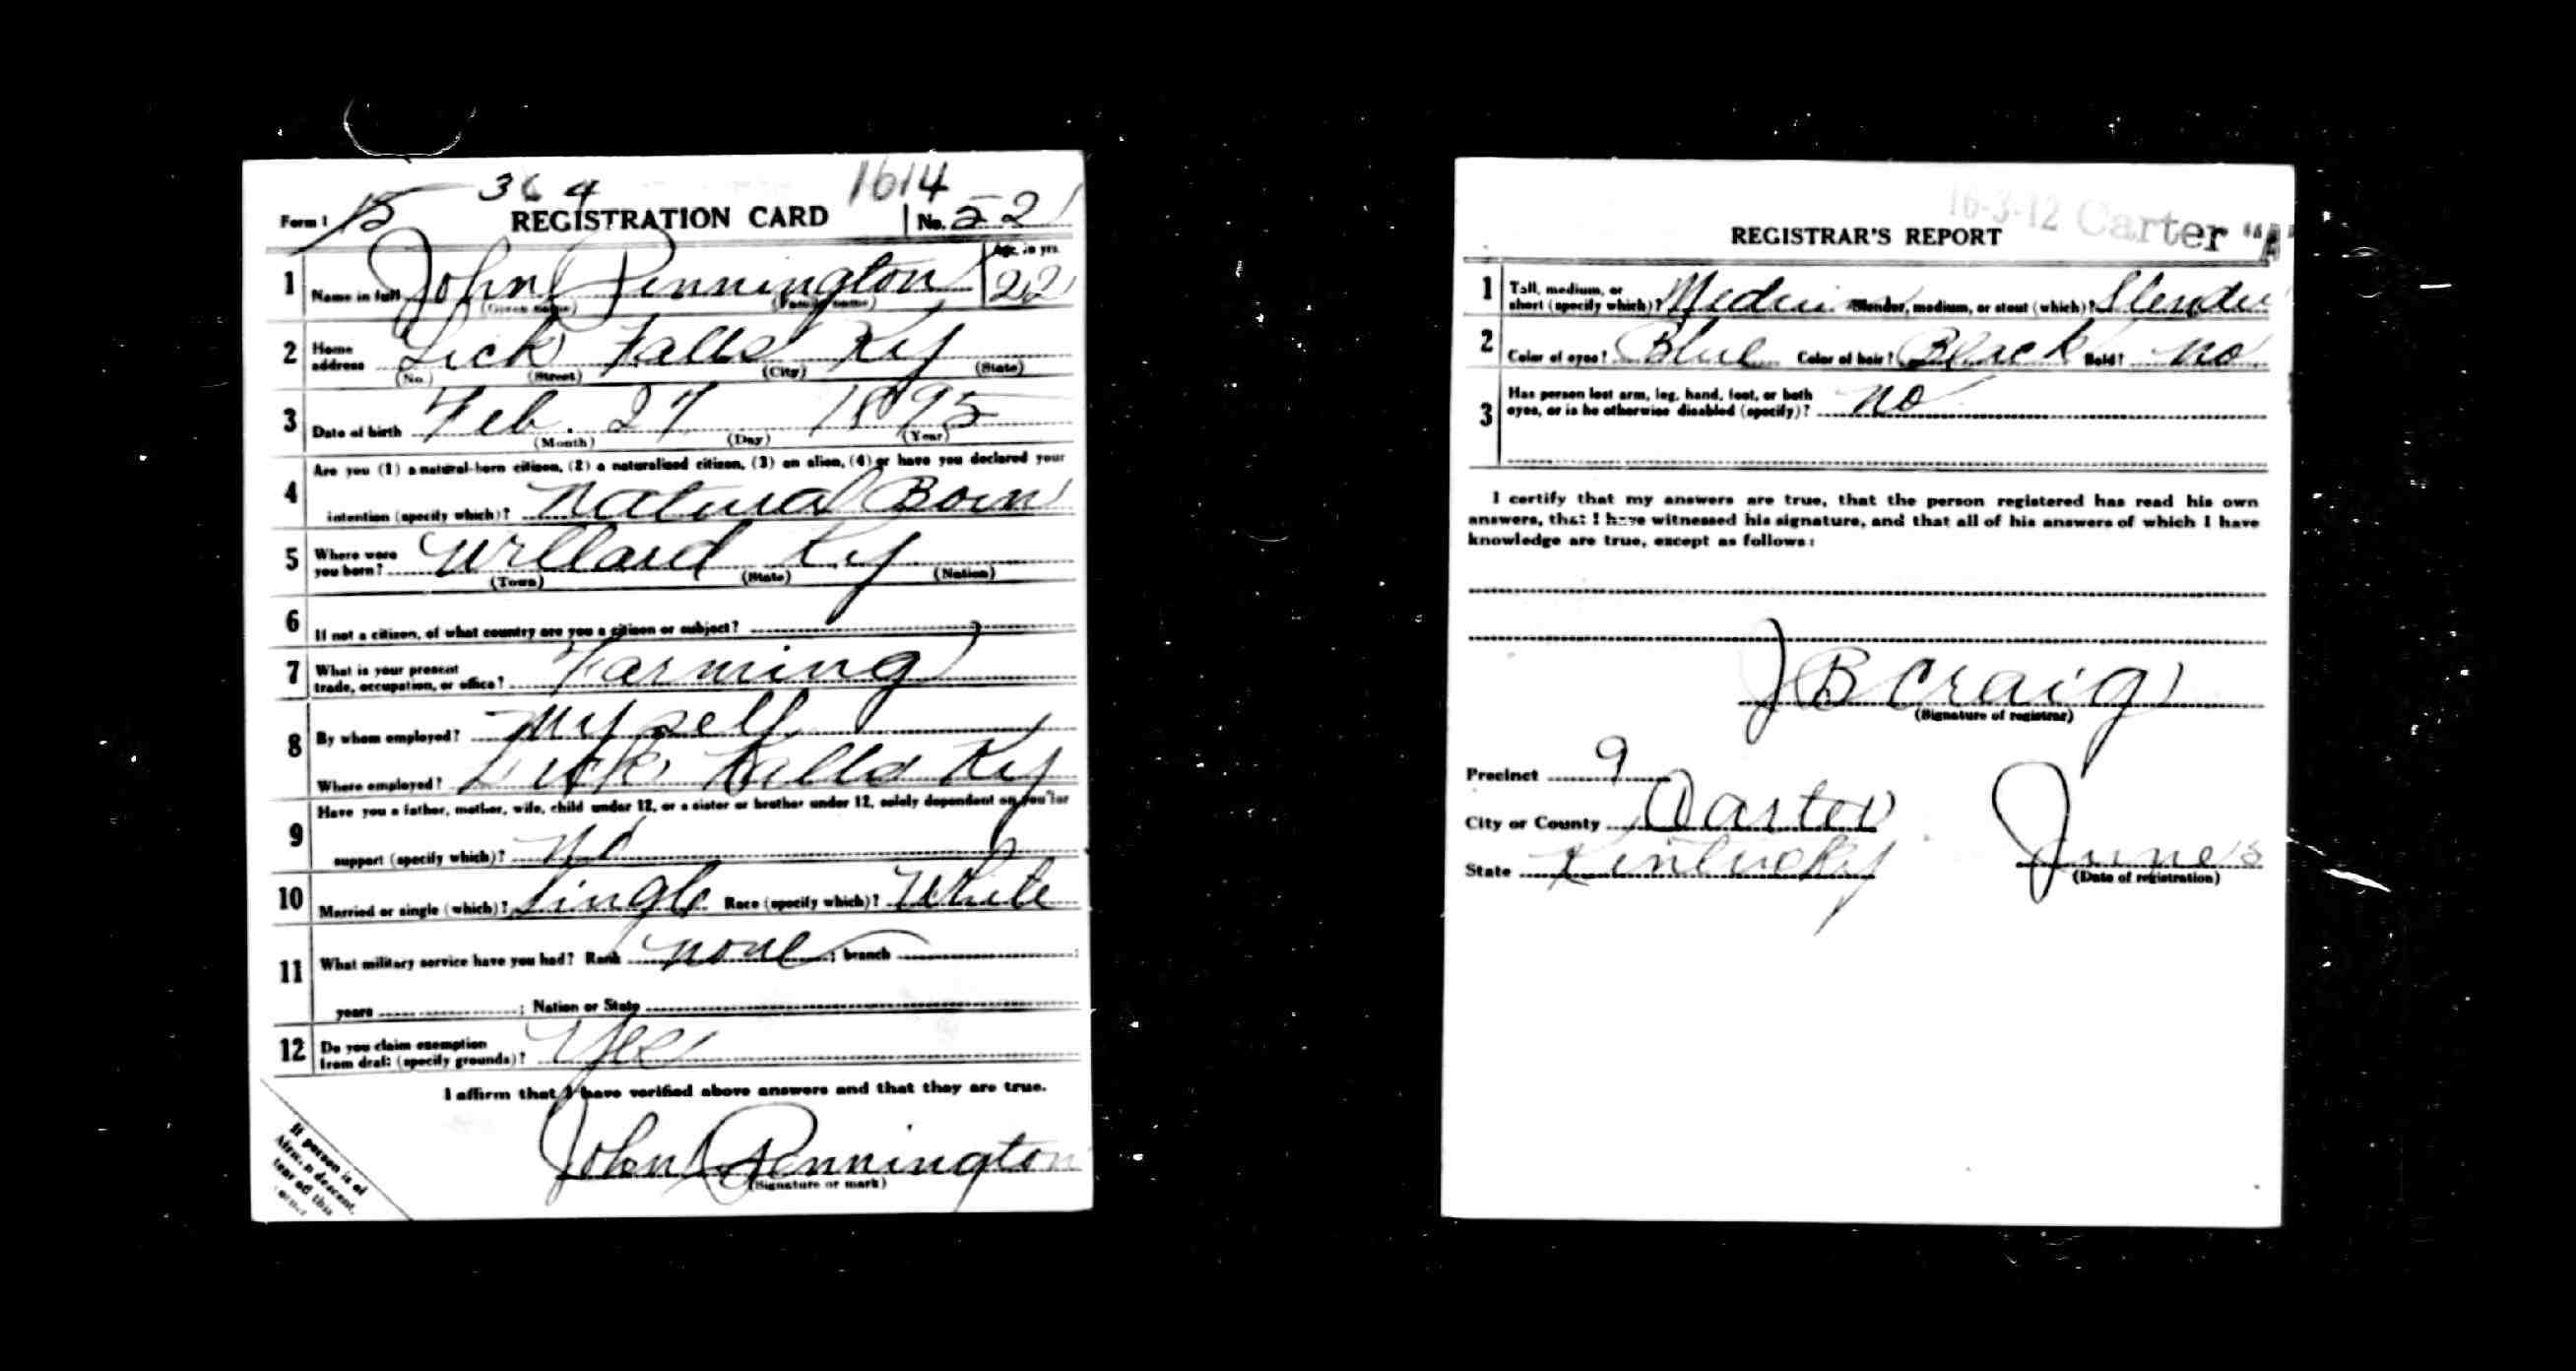 364 1614
Form 1 15 REGISTRATION CARD No. 221
1 Name in full John Pennington Age, in yrs. 22
(Given name) (Family name)
2 Home address Lick Falls Ky
(No.) (Street) (City) (State)
3 Date of birth Feb. 27 1895
(Month) (Day) (Year)
4 Are you (1) a natural-born citizen, (2) a naturalized citizen, (3) an alien, (4) or have you declared your
intention (specify which)? Natural Born
5 Where were you born? Willard Ky
(Town) (State) (Nation)
6 If not a citizen, of what country are you a citizen or subject?
7 What is your present
trade, occupation, or office? Farming
8 By whom employed? My self
Where employed? Lick Falls Ky
9 Have you a father, mother, wife, child under 12, or a sister or brother under 12, solely dependent on you for
support (specify which)? No
10 Married or single (which)? Single Race (specify which)? White
11 What military service have you had? Rank none ; branch
years ; Nation or State
12 Do you claim exemption
from draft (specify grounds)? Yes
I affirm that I have verified above answers and that they are true.
John Pennington
(Signature or mark)
If person is of
African descent,
tear off this
corner
16-3-12 Carter "A"
REGISTRAR'S REPORT
1 Tall, medium, or
short (specify which)? Medium Slender, medium, or stout (which)? Slender
2 Color of eyes? Blue Color of hair? Black Bald? no
3 Has person lost arm, leg, hand, foot, or both
eyes, or is he otherwise disabled (specify)? no
I certify that my answers are true, that the person registered has read his own
answers, that I have witnessed his signature, and that all of his answers of which I have
knowledge are true, except as follows:
J B Craig
(Signature of registrar)
Precinct 9
City or County Carter
State Kentucky June 5
(Date of registration)